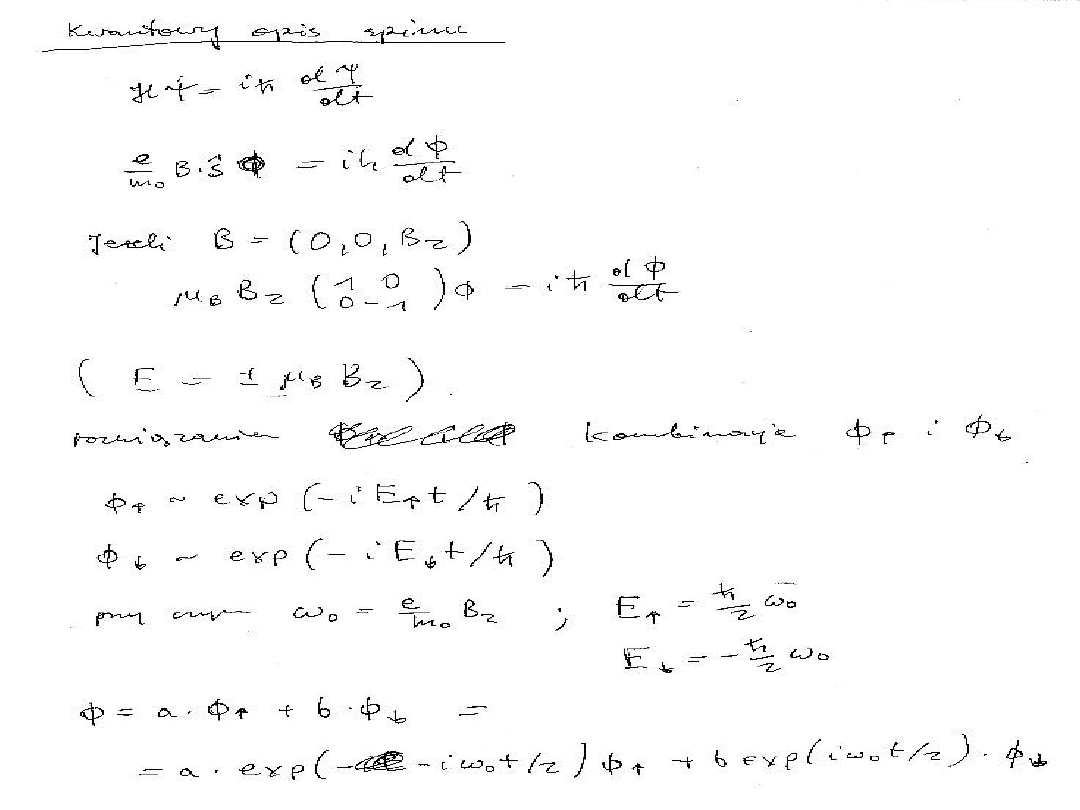 Kwantowy opis spinu
ℋψ = iħ dψ/dt
e/m₀ B·ŝ ϕ = iħ dϕ/dt
Jeżeli B = (0,0,Bz)
μB Bz (1 0 0 -1) ϕ = iħ dϕ/dt
( E = ± μB Bz )
rozwiązaniem kombinacje ϕ↑ i ϕ↓
ϕ↑ ~ exp (-i E↑t /ħ )
ϕ↓ ~ exp (- i E↓t/ħ )
przy czym ω₀ = e/m₀ Bz ; E↑ = ħ/2 ω₀
E↓ = - ħ/2 ω₀
ϕ = a · ϕ↑ + b · ϕ↓ =
= a · exp(- - iω₀t/2) ϕ↑ + b exp(iω₀t/2) · ϕ↓